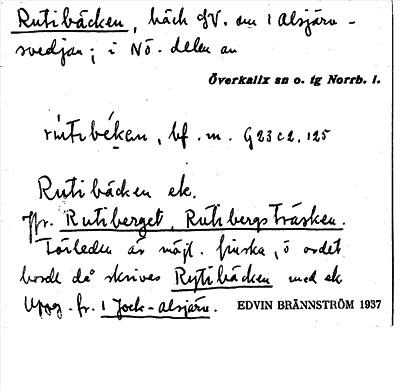 Rutibäcken, bäck SV. om 1 Alsjärv-
svedjan; i NÖ. delen av
Överkalix sn o. tg Norrb. l.
bf. m. G23 c2, 125
Rutibäcken ek.
Jfr. Rutiberget, Rutibergsträsken.
Förleden är möjl. finska, o ordet
borde då skrives Rytibäcken med ek
Uppg. fr. 1 Jock-alsjärv. EDVIN BRÄNNSTRÖM 1937